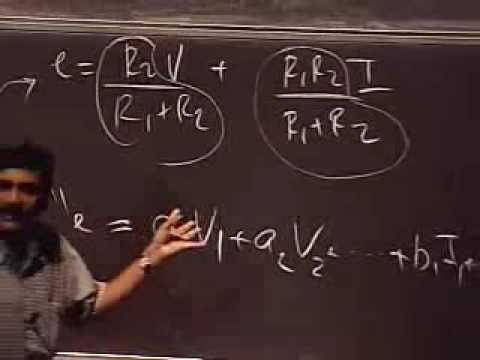 e = R2 V / R1+R2 + R1R2 I / R1+R2
e = V1 + a2 V2 ... + b1 I1 +